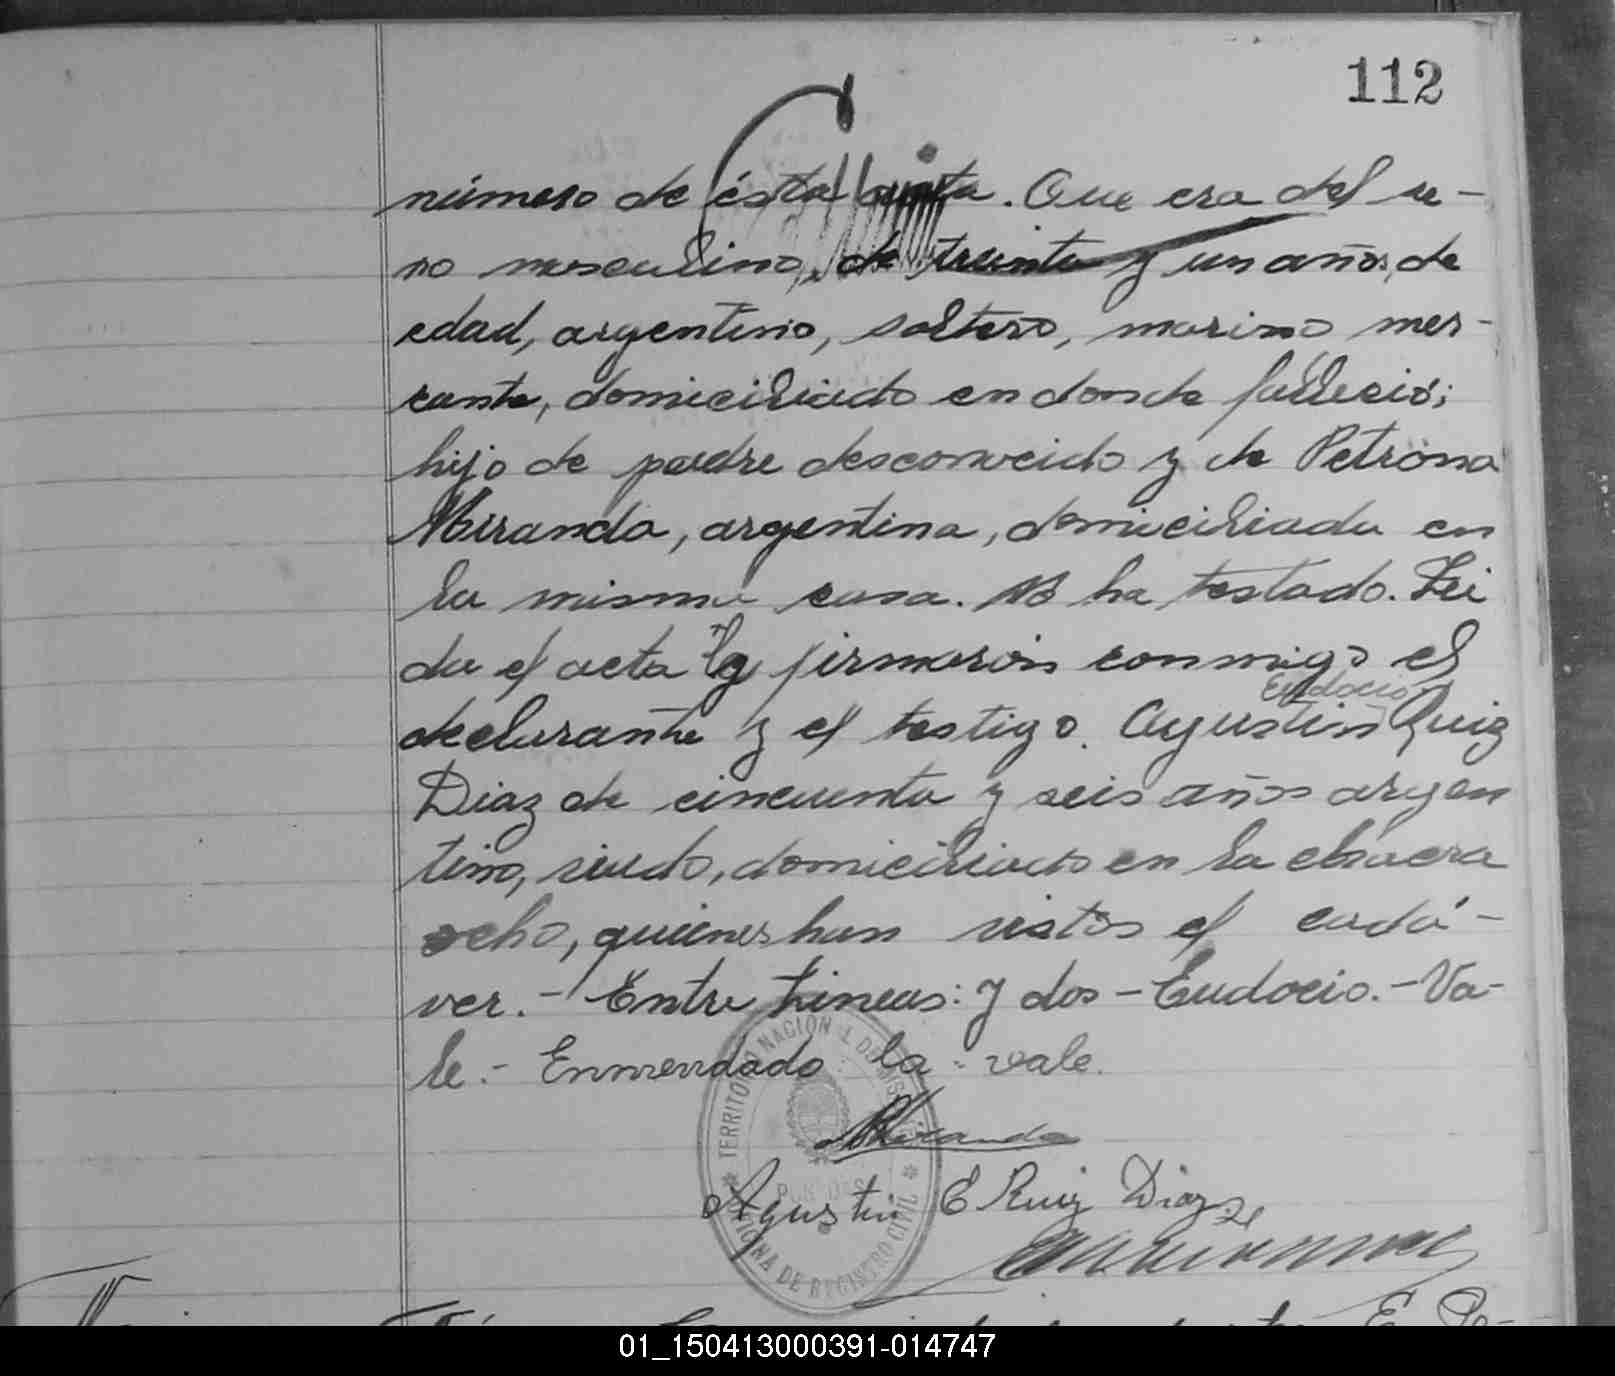 112
número de ésta acta. Que era del se-
xo masculino, de treinta y un años, de
edad, argentino, soltero, marino mer-
cante, domiciliado en donde falleció;
hijo de padre desconocido y de Petrona
Miranda, argentina, domiciliada en
la misma casa. No ha testado. Leí
da el acta la firmaron conmigo el
Eudocio
declarante y el testigo. Agustin Ruiz
Diaz de cincuenta y seis años argen
tino, viudo, domiciliado en la chacra
ocho, quienes han vistos el cadá-
ver.- Entre Lineas: y dos - Eudocio. - Va-
le. - Enmendado: la: vale.
TERRITORIO NACIONAL DE MISIONES
POSADAS
OFICINA DE REGISTRO CIVIL
Miranda
Agustin E Ruiz Diaz
01_150413000391-014747